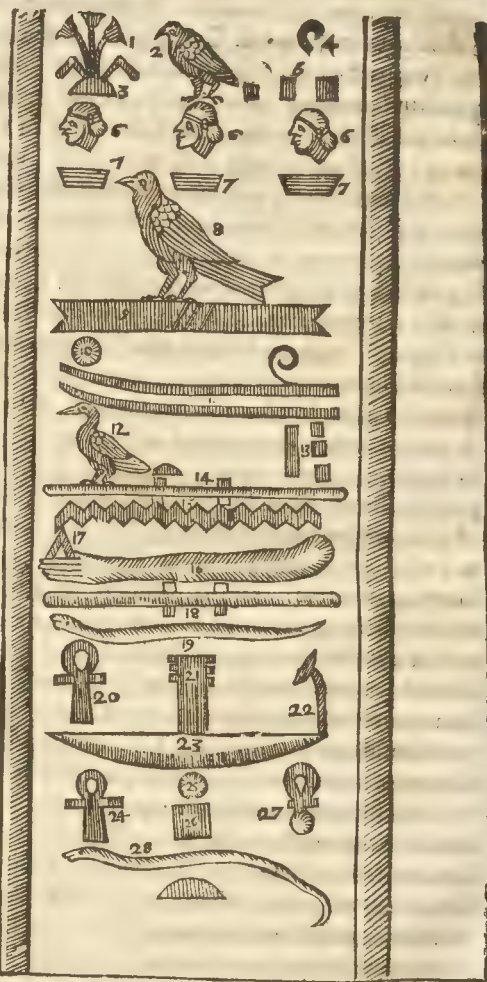 1 2 4
3
6 6 6
7 7 7
8
9
10
12 13
14
15
17
16
18
19
20 21 22
23
25
24 26 27
28